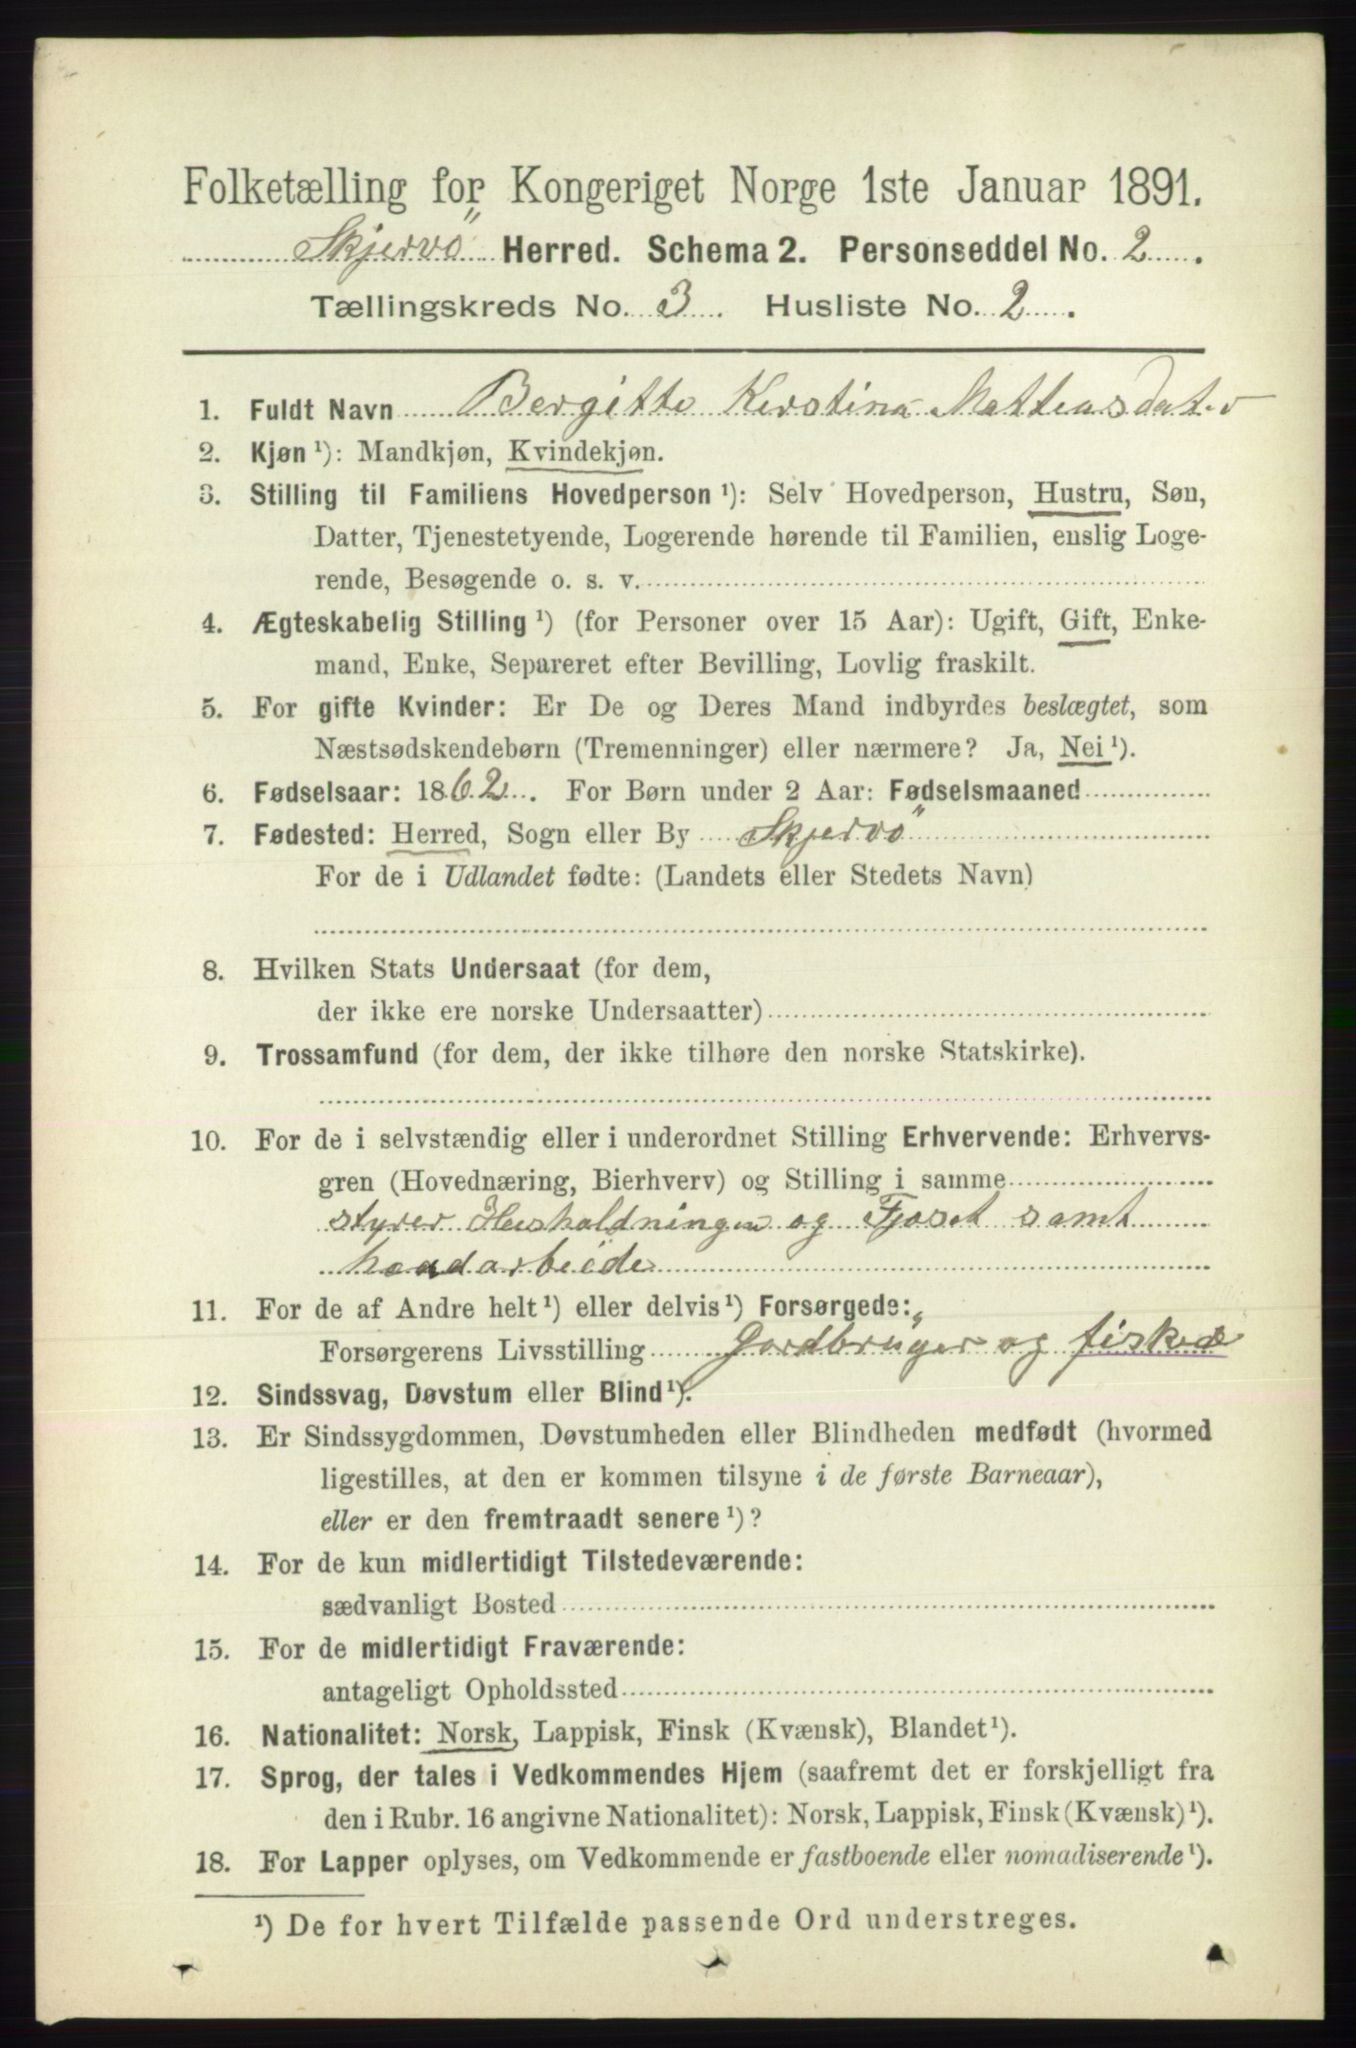 Folketælling for Kongeriget Norge 1ste Januar 1891.
Skjervö Herred. Schema 2. Personseddel No. 2.
Tællingskreds No. 3. Husliste No. 2.
1. Fuldt Navn Bergitte Kerstina Matteasdater
2. Kjøn ¹): Mandkjøn, Kvindekjøn.
3. Stilling til Familiens Hovedperson ¹): Selv Hovedperson, Hustru, Søn,
Datter, Tjenestetyende, Logerende hørende til Familien, enslig Loge-
rende, Besøgende o. s. v.
4. Ægteskabelig Stilling ¹) (for Personer over 15 Aar): Ugift, Gift, Enke-
mand, Enke, Separeret efter Bevilling, Lovlig fraskilt.
5. For gifte Kvinder: Er De og Deres Mand indbyrdes beslægtet, som
Næstsødskendebørn (Tremenninger) eller nærmere? Ja, Nei ¹).
6. Fødselsaar: 1862. For Børn under 2 Aar: Fødselsmaaned
7. Fødested: Herred, Sogn eller By Skjervö
For de i Udlandet fødte: (Landets eller Stedets Navn)
8. Hvilken Stats Undersaat (for dem,
der ikke ere norske Undersaatter)
9. Trossamfund (for dem, der ikke tilhøre den norske Statskirke).
10. For de i selvstændig eller i underordnet Stilling Erhvervende: Erhvervs-
gren (Hovednæring, Bierhverv) og Stilling i samme
styrer Husholdningen og Fjoset samt
haandarbeide
11. For de af Andre helt ¹) eller delvis ¹) Forsørgede:
Forsørgerens Livsstilling Gordbruger og fisker
12. Sindssvag, Døvstum eller Blind ¹).
13. Er Sindssygdommen, Døvstumheden eller Blindheden medfødt (hvormed
ligestilles, at den er kommen tilsyne i de første Barneaar),
eller er den fremtraadt senere ¹)?
14. For de kun midlertidigt Tilstedeværende:
sædvanligt Bosted
15. For de midlertidigt Fraværende:
antageligt Opholdssted
16. Nationalitet: Norsk, Lappisk, Finsk (Kvænsk), Blandet ¹).
17. Sprog, der tales i Vedkommendes Hjem (saafremt det er forskjelligt fra
den i Rubr. 16 angivne Nationalitet): Norsk, Lappisk, Finsk (Kvænsk) ¹).
18. For Lapper oplyses, om Vedkommende er fastboende eller nomadiserende ¹).
¹) De for hvert Tilfælde passende Ord understreges.